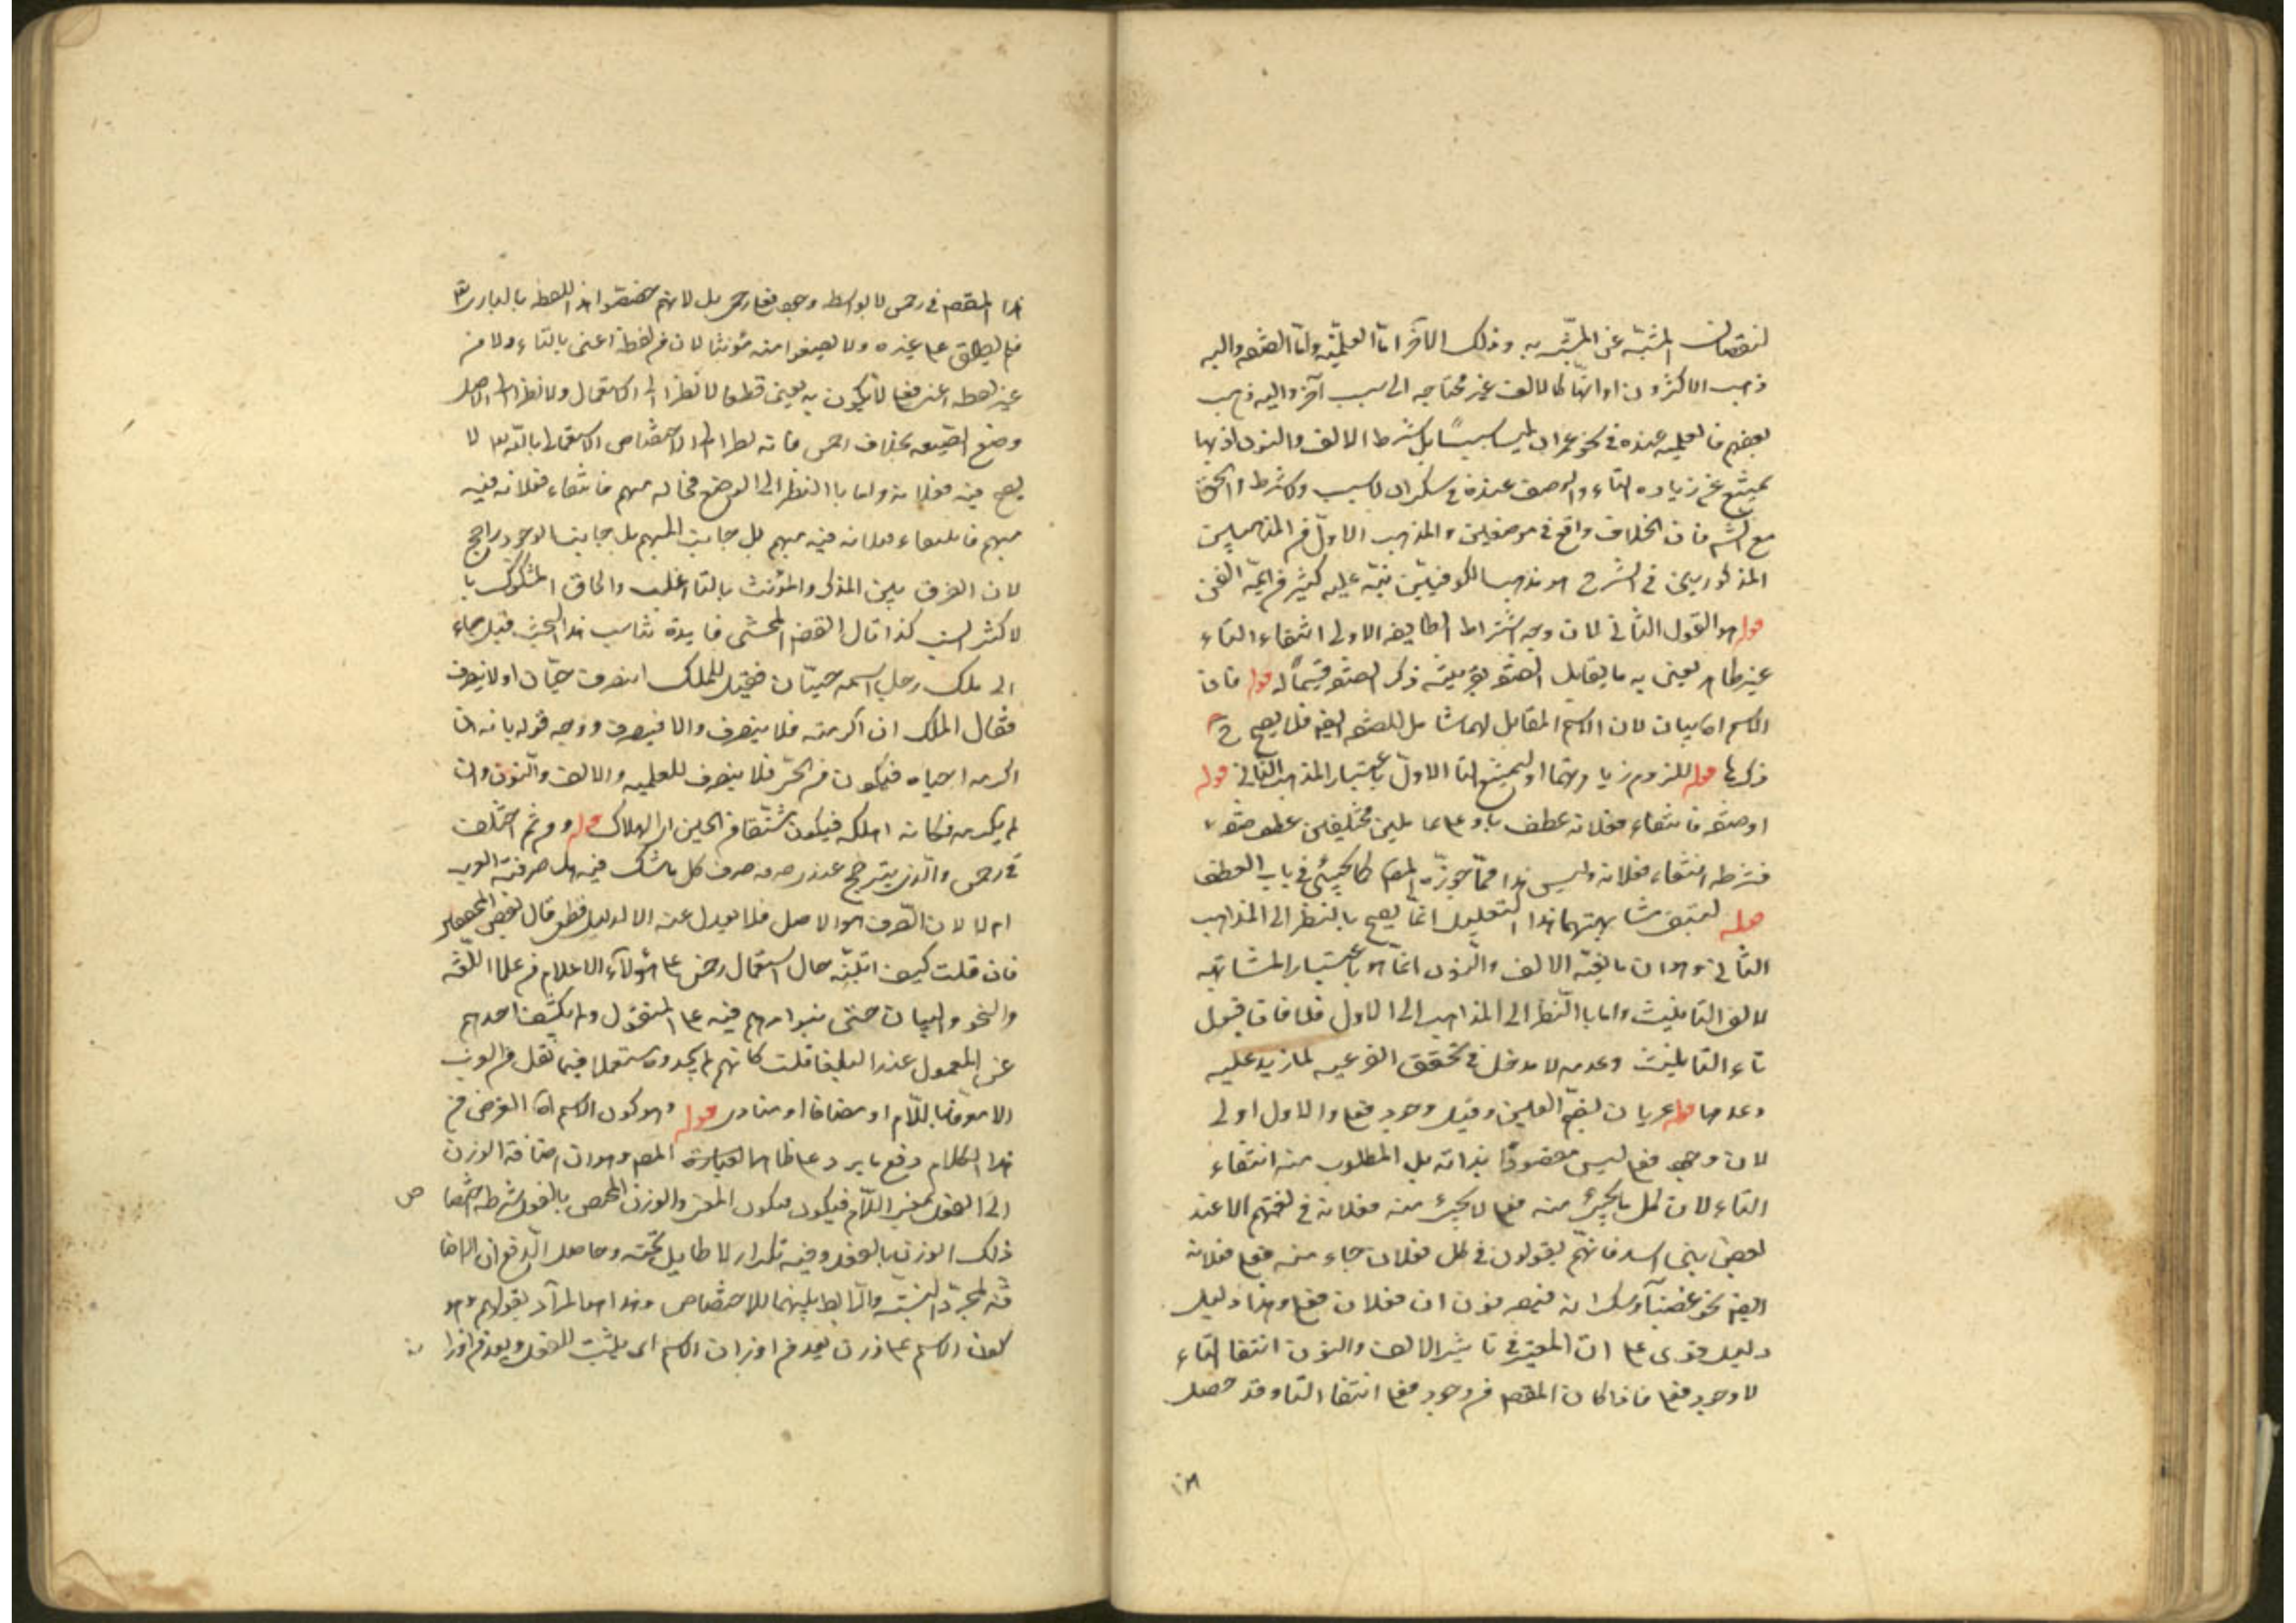 لنقصان المشبه عن المشبه به وذلك الآخر اما العلمية واما الصفة واليه
ذهب الاكثرون او انها كالالف غير محتاجة الى سبب آخر واليه ذهب
بعضهم فالعلمية عنده في نحو عمران ليس سببا بل شرط الالف والنون اذ بها
يمتنع عن زيادة التاء والوصف عنده في سكران لا سبب ولا شرط والحق
مع فان الخلاف واقع في موضعين والمذهب الاول من المذهبين
المذكورين في الشرح هو مذهب الكوفيين نبه عليه كثير من ائمة الفن
قوله هو القول الثاني لان وجه اشتراط الطايفة الاولى انتفاء التاء
غير ظاهر يعني به ما يقابل الصفة بقرينة ذكر الصفة قسيما له قوله فان
الاسم لان الاسم المقابل لهما شامل للصفة ايضا فلا يصح ح
ذكرها قوله للزوم زيادتهما او ليمتنع التا الاول باعتبار المذهب الثاني قوله
او صفة فانتفاء فعلانة عطف باو على عاملين مختلفين عطف صفة
فشرطه انتفاء فعلانة وليس هذا مما جوزه المص كما يجيئ في باب العطف
قوله ليتبقى مشابهتهما هذا التعليل انما يصح بالنظر الى المذاهب
الثاني وهو ان مانعية الالف والنون انما هو باعتبار المشابهة
لالف التانيث واما بالنظر الى المذاهب الى الاول فلا فان قبول
تاء التانيث وعدمه لا مدخل في تحقق الفرعية لما زيد عليه
وعدمها قوله عريان بضم العين وقيل وجود فعلى والاول اولى
لان وجود فعلى ليس مقصودا بذاته بل المطلوب منه انتفاء
التاء لان كل ما يجيئ منه فعلى لا يجيئ منه فعلانة في لغتهم الا عند
بعض بني اسد فانهم يقولون في كل فعلان جاء منه فعلى فعلانة
ايضا نحو غضبانة وسكرانة فيصرفون اذن فعلان فعلى وهذا دليل
دليل قوى على ان المعتبر في تاثير الالف والنون انتفا التاء
لا وجود فعلى فاذا كان المقصم من وجود فعلى انتفا التا وقد حصل
هذا المقصم في رحمن لا بواسطة وجود فعلى رحمن بل لانهم خصصوا هذا اللفظ بالباري تع
فلم يطلق على غيره ولا يصيغوا منه مؤنثا لا من لفظه اعنى بالتاء ولا من
غير لفظه اعنى فعلى لا يكون به يعين قطعا لا نظرا الى الاستعمال ولا نظرا الى اصل
وضع الصيغة بخلاف رحمن فانه نظرا الى الاختصاص الاستعمال بالله تع لا
يصح فيه فعلانة واما بالنظر الى الوضع فحاله مبهم فانتفاء فعلانة فيه
مبهم فانتفاء فعلانة فيه مبهم بل جانب المبهم بل جانب الوجود راجح
لان الفرق بين المذكر والمؤنث بالتا اغلب والحاق المشكوك با
لاكثر انسب كذا قال الفض المحشى فايدة تناسب هذا البحث قيل جاء
الى ملك رجل اسمه حيان فقيل للملك اينصرف حيان او لا ينصرف
فقال الملك ان اكرمته فلا ينصرف والا فينصرف ووجه قوله بانه ان
اكرمه احياه فيكون من الحى فلا ينصرف للعلمية والالف والنون وان
لم يكرمه فكانه اهلكه فيكون مشتقا من الحين اى الهلاك قوله ومن ثم اختلف
في رحمن والذى يترجح عندى صرفه صرف كل ما شك فيه هل صرفته العرب
ام لا لان الصرف هو الاصل فلا يعدل عنه الا لدليل قطعى قال بعض المحصلين
فان قلت كيف اشتبه حال استعمال رحمن على هؤلاء الاعلام من علما اللغة
والنحو والبيان حتى بنوا امرهم فيه على المنقول ولم يكشف احدهم
عن المعمول عند البلغا قلت كانهم لم يجدوه مستعملا فيما نقل من العرب
الا معرفا باللام او مضافا او منادى قوله وهو كون الاسم آه الغرض من
هذا الكلام دفع ما يرد على ظاهر العبارة المص وهو ان اضافة الوزن
الى الفعل بمعنى اللام فيكون فيكون المعنى والوزن المختص بالفعل شرطه اختصا ص
ذلك الوزن بالفعل وفيه تكرار لا طايل تحته وحاصل الدفع ان الاضا
فة لمجرد النسبة والرابطة بينهما لا للاختصاص وهذا هو المراد بقولهم وهو
كون الاسم على وزن يعد من اوزان الاسم اى يثبت للفعل ويعد من اوزا نه